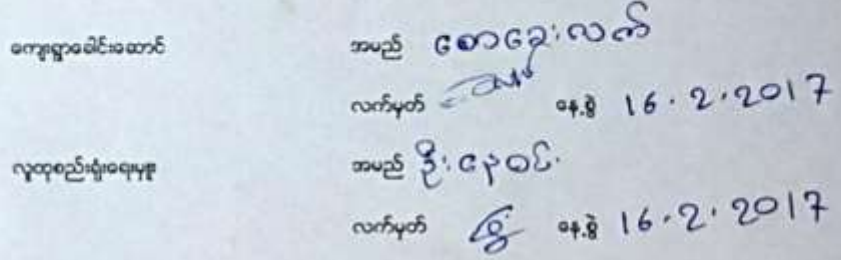 ကျေးရွာခေါင်းဆောင် အမည် စောခွေးလက်
လက်မှတ် နေ့စွဲ 16.2.2017
လူထုစည်းရုံးရေးမှူး အမည် ဦးနေဝင်း
လက်မှတ် နေ့စွဲ 16.2.2017